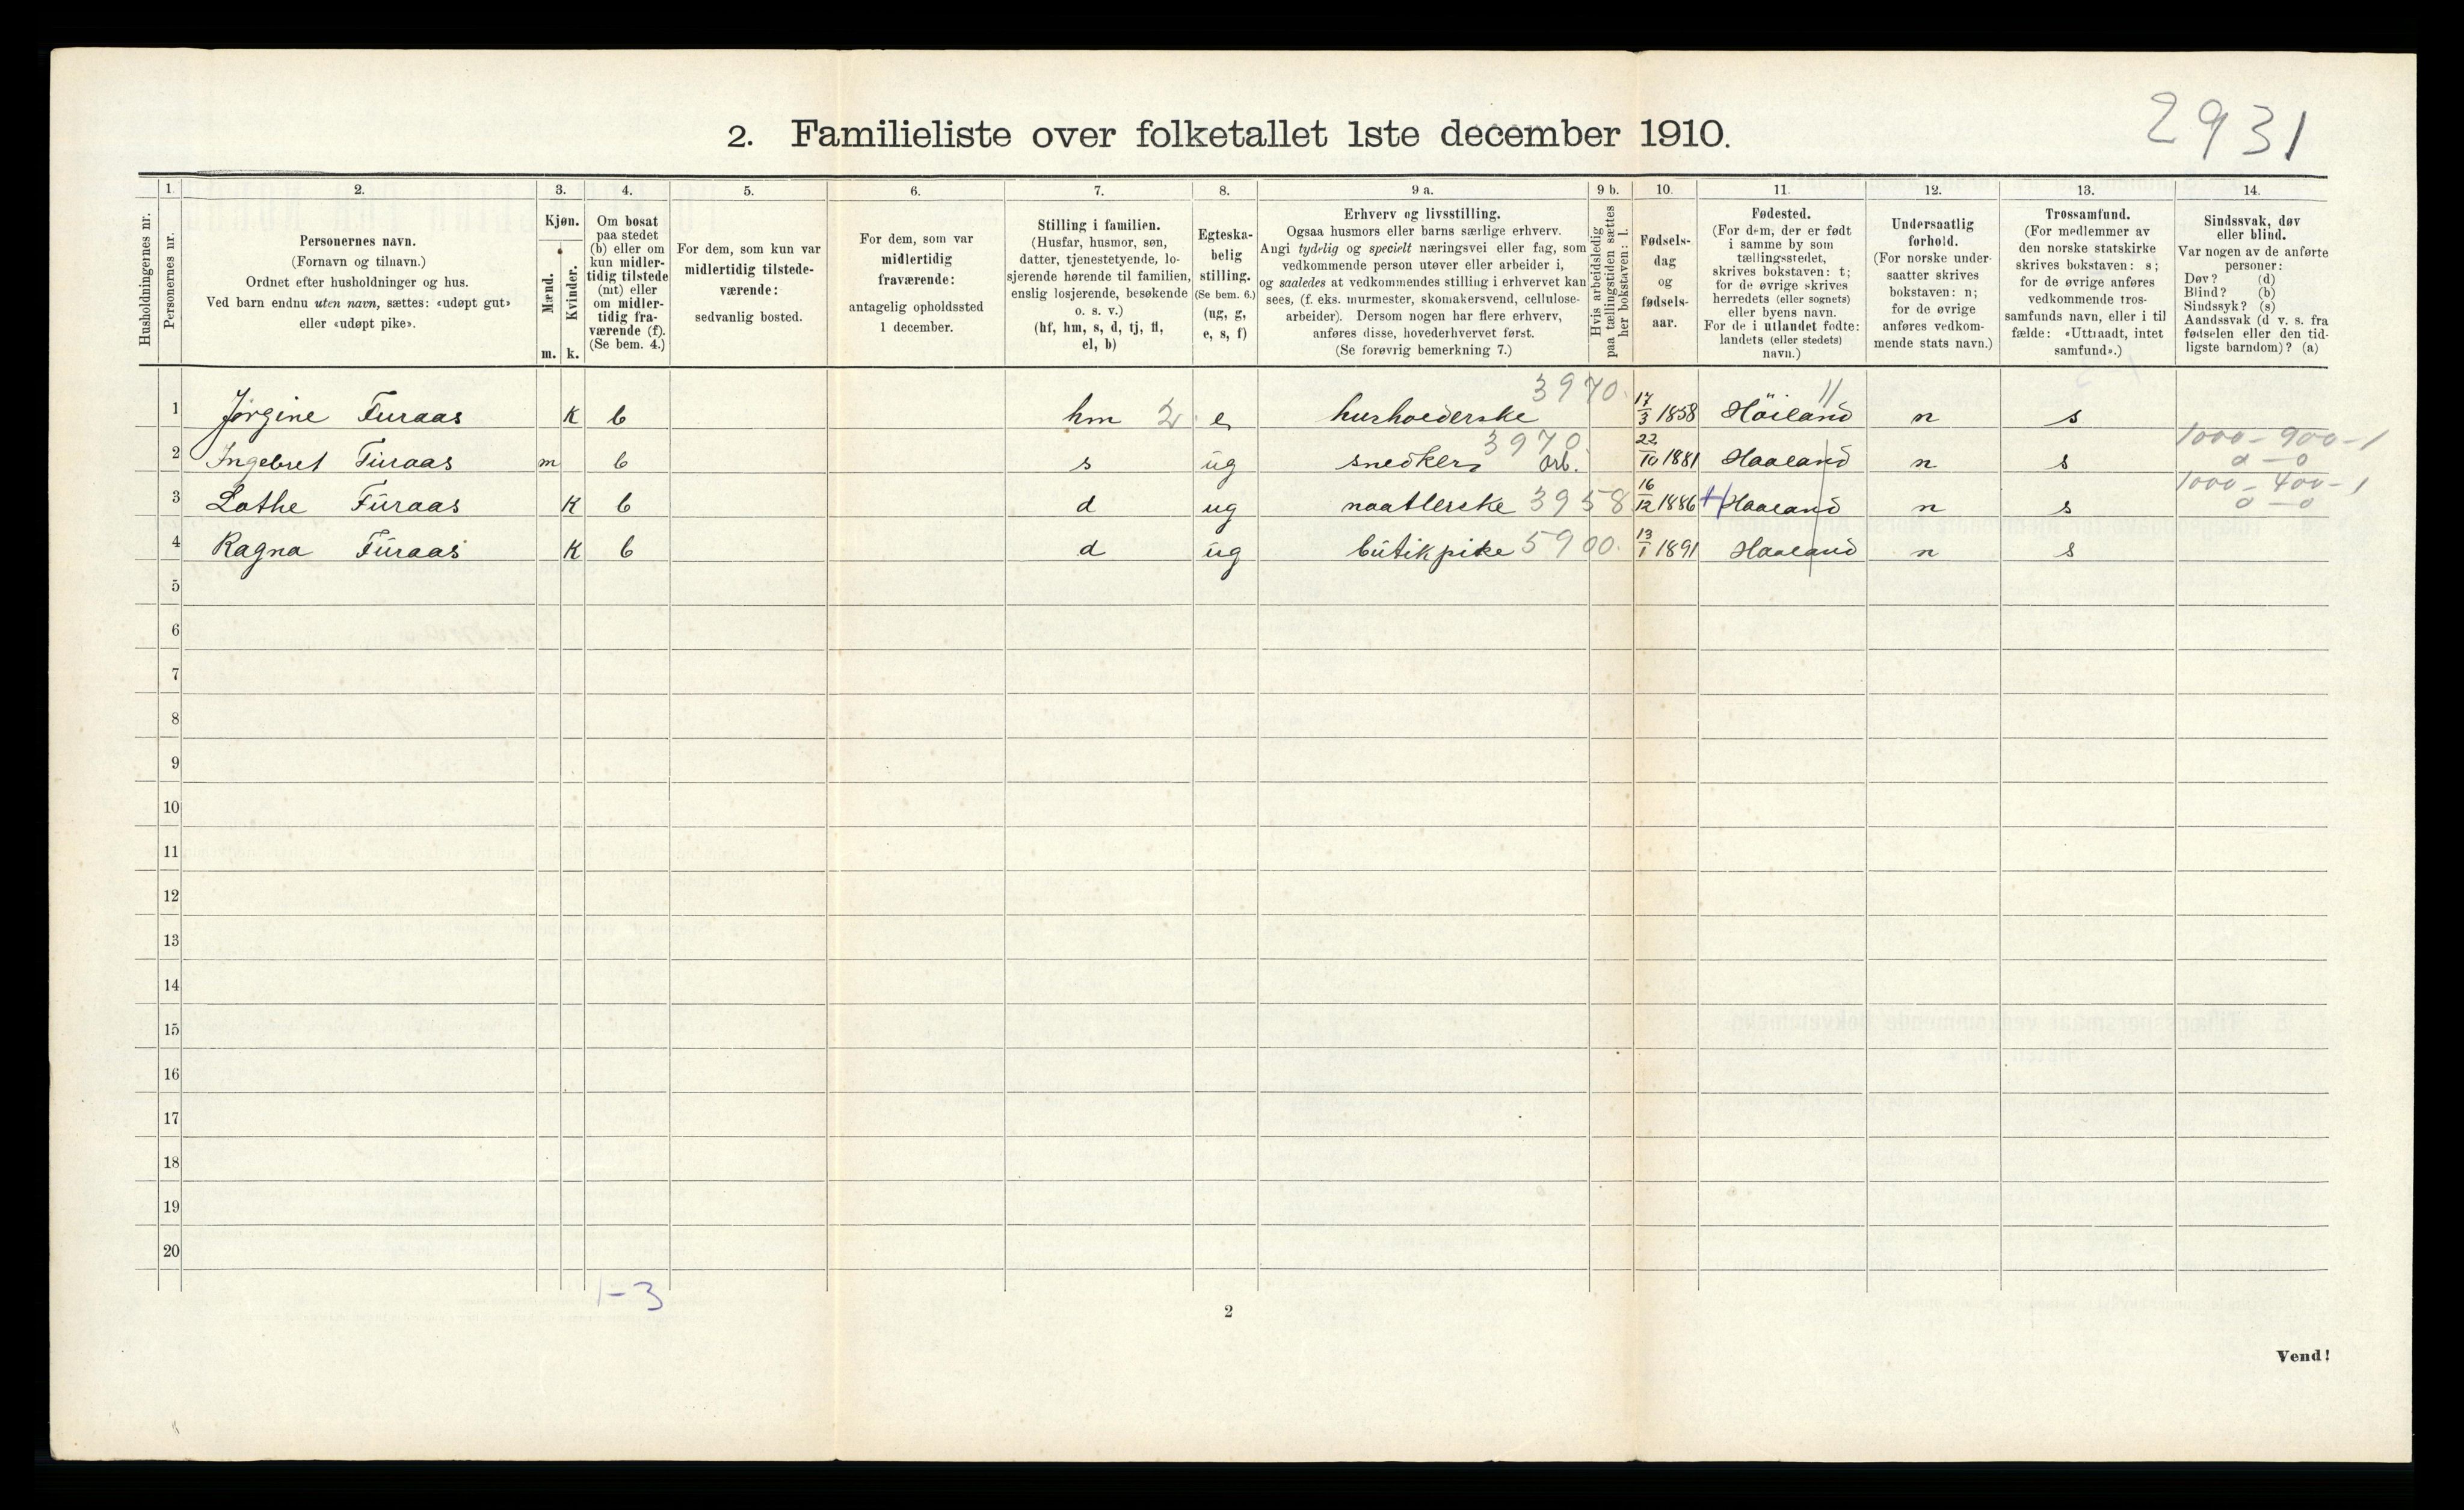 2931
2. Familieliste over folketallet 1ste december 1910.
Husholdningernes nr.
1. Personernes nr.
2. Personernes navn.
(Fornavn og tilnavn.)
Ordnet efter husholdninger og hus.
Ved barn endnu uten navn, sættes: «udøpt gut»
eller «udøpt pike».
3. Kjøn.
Mænd. m.
Kvinder. k.
4. Om bosat
paa stedet
(b) eller om
kun midler-
tidig tilstede
(mt) eller
om midler-
tidig fra-
værende (f).
(Se bem. 4.)
5. For dem, som kun var
midlertidig tilstede-
værende:
sedvanlig bosted.
6. For dem, som var
midlertidig
fraværende:
antagelig opholdssted
1 december.
7. Stilling i familien.
(Husfar, husmor, søn,
datter, tjenestetyende, lo-
sjerende hørende til familien,
enslig losjerende, besøkende
o. s. v.)
(hf, hm, s, d, tj, fl,
el, b)
8. Egteska-
belig
stilling.
(Se bem. 6.)
(ug, g,
e, s, f)
9 a. Erhverv og livsstilling.
Ogsaa husmors eller barns særlige erhverv.
Angi tydelig og specielt næringsvei eller fag, som
vedkommende person utøver eller arbeider i,
og saaledes at vedkommendes stilling i erhvervet kan
sees, (f. eks. murmester, skomakersvend, cellulose-
arbeider). Dersom nogen har flere erhverv,
anføres disse, hovederhvervet først.
(Se forøvrig bemerkning 7.)
9 b. Hvis arbeidsledig
paa tællingstiden sættes
her bokstaven: l.
10. Fødsels-
dag
og
fødsels-
aar.
11. Fødested.
(For dem, der er født
i samme by som
tællingsstedet,
skrives bokstaven: t;
for de øvrige skrives
herredets (eller sognets)
eller byens navn.
For de i utlandet fødte:
landets (eller stedets)
navn.)
12. Undersaatlig
forhold.
(For norske under-
saatter skrives
bokstaven: n;
for de øvrige
anføres vedkom-
mende stats navn.)
13. Trossamfund.
(For medlemmer av
den norske statskirke
skrives bokstaven: s;
for de øvrige anføres
vedkommende tros-
samfunds navn, eller i til
fælde: «Uttraadt, intet
samfund».)
14. Sindssvak, døv
eller blind.
Var nogen av de anførte
personer:
Døv? (d)
Blind? (b)
Sindssyk? (s)
Aandssvak (d v. s. fra
fødselen eller den tid-
ligste barndom)? (a)
3970. 11
1 Jørgine Furaas K b hm 2 e husholderske 17/3 1858 Höiland n s
3970 1000-900-1
2 Ingebret Furaas m b s ug snedker arb. 22/10 1881 Haaland n s 0-0
1000-400-1
3 Lothe Furaas K b d ug naatlerske 3958 16/12 1886 Haaland n s 0-0
4 Ragna Furaas K b d ug butikpike 5900. 13/1 1891 Haaland n s
5
6
7
8
9
10
11
12
13
14
15
16
17
18
19
20
1-3
2
Vend!